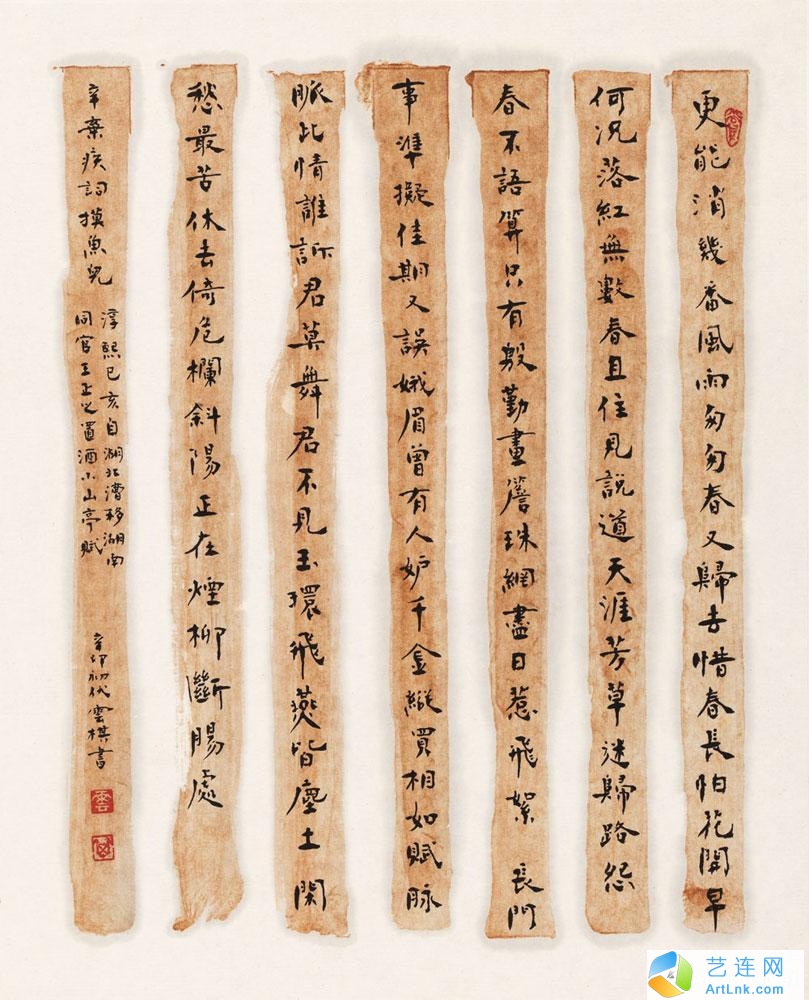 更能消幾番風雨匆匆春又歸去惜春長怕花開早
何況落紅無數春且住見說道天涯芳草迷歸路怨
春不語算只有殷勤畫簷珠網盡日惹飛絮 長門
事準擬佳期又誤娥眉曾有人妒千金縱買相如賦脉
脈此情誰訴君莫舞君不見玉環飛燕皆塵土 閑
愁最苦休去倚危欄斜陽正在煙柳斷腸處
辛棄疾詞摸魚兒
淳熙己亥自湖北漕移湖南
同官王正之置酒小山亭賦
辛卯初伏雲棋書
艺连网
ArtLnk.com